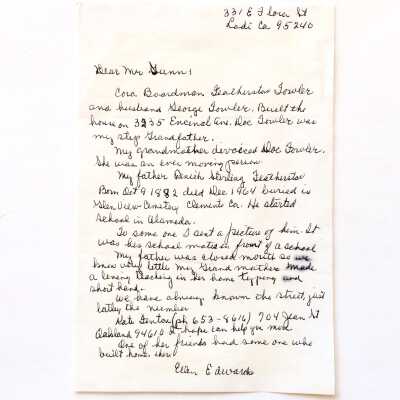 331 E Flora St
Lodi Ca 95240
Dear Mr Gunn;
Cora Boardman Featherston Fowler
and husband George Fowler. Built the
house on 3235 Encinal Ave. Doc Fowler was
my step Grandfather.
My grandmother devorced Doc Fowler.
She was an ever moving person
My father Beneih Sterling Featherston
Born Oct 9 1882 died Dec 1964 buried in
Glen View Cemetery Clements Ca. He started
school in Alameda.
To some one I sent a picture of him. It
was his school mates in front of a school
My father was closed mouth so we
knew very little my Grand mother made
a living teaching in her home typping and
short hand.
We have alway known the street, just
latley the number
Kate Denton (ph 653-8616) 704 Jean St
Oakland 94610 I hope can help you more
One of her friends had some one who
built homes there.
Ellen Edwards